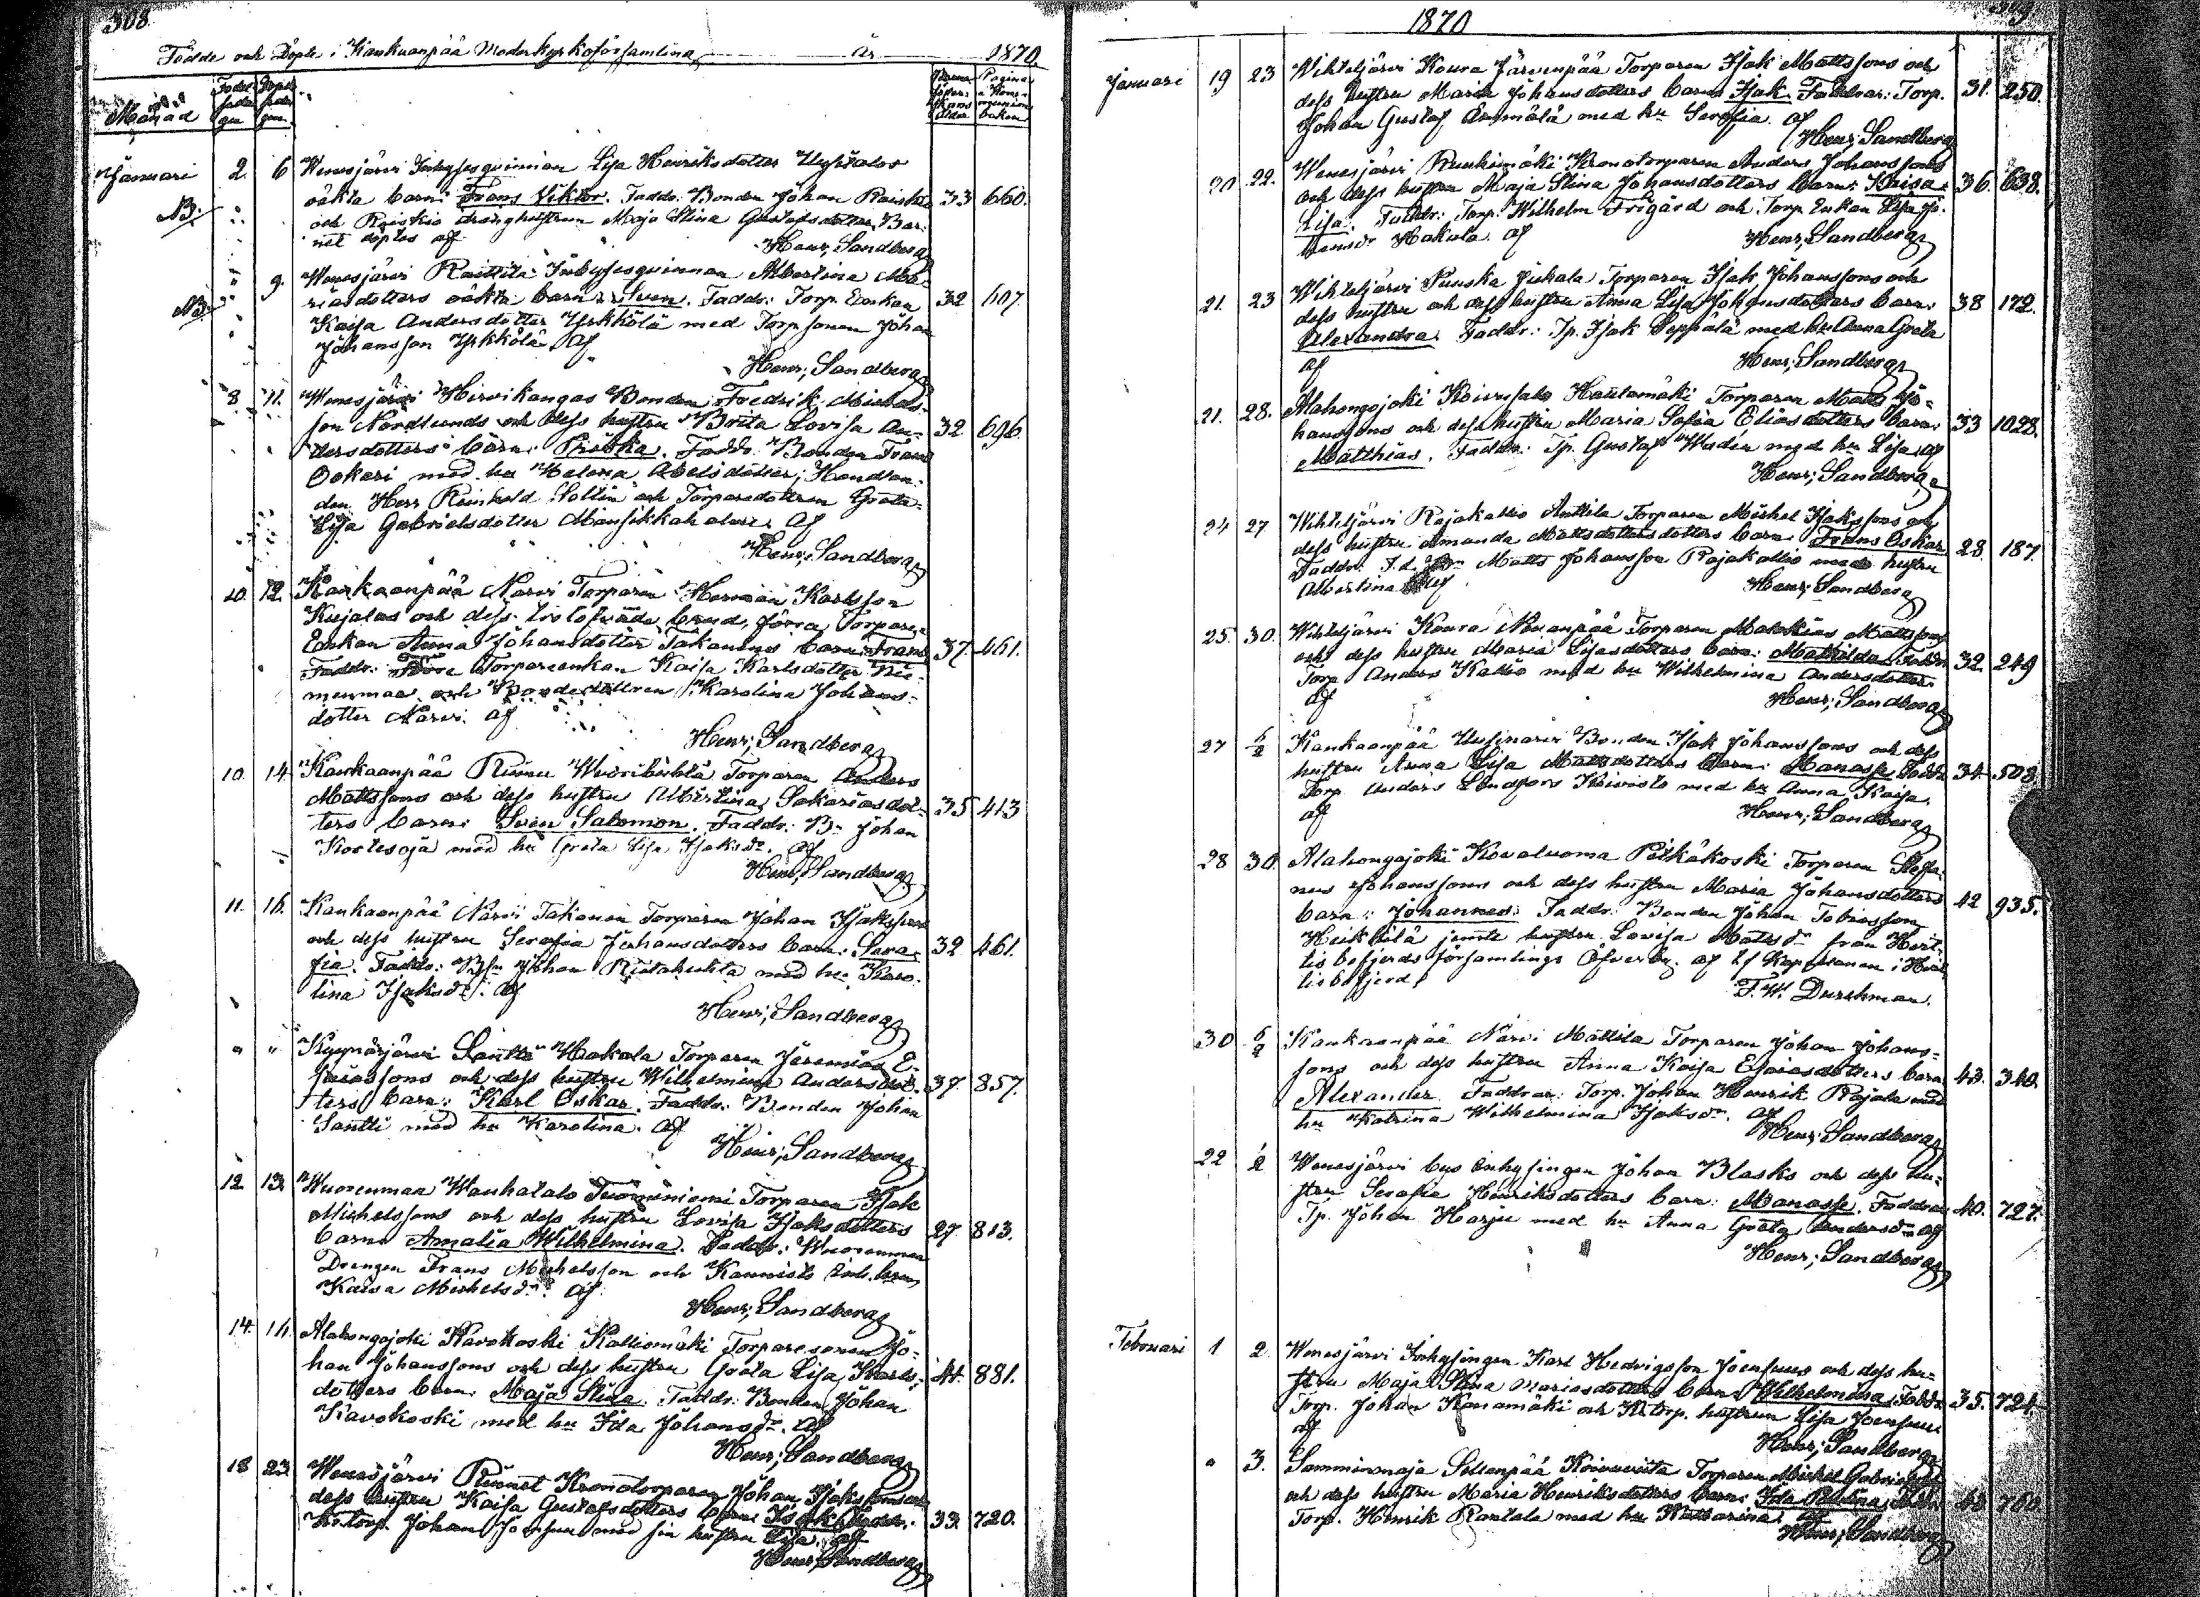 308
Födde och Döpte i Kankaanpää Moderkyrkoförsamling År 1870
Månad
Januari 2 6 Wenesjärvi Inhysesqvinnan Lisa Henriksdotter
oäkta barn: Frans Viktor. Faddr: Bonden Johan Raiskio 33 660.
NB. och Raiskio dränghustrun Maja Stina Gustafsdotter. Bar-
net döptes af
Henr; Sandberg
" 9. Wenesjärvi Raittila Inhysesqvinnan Albertina Ma-
NB. riasdotters oäkta barn: Sven. Faddr: Torp. Enkan 32 607.
Kaisa Andersdotter Yrkkölä med Torp.sonen Johan
Johansson Yrkkölä. af
Henr; Sandberg
8 11. Wenesjärvi Hirvikangas Bonden Fredrik Michels-
son Nordlunds och dess hustru Brita Lovisa An- 32 696.
dersdotters barn: Faddr. Bonden Frans
med hu Helena Abelsdotter; Handlan-
den Herr Reinhold och Torparedottren Greta
Lisa Gabrielsdotter af
Henr; Sandberg
10. 12. Kankaanpää Narvi Torparen Herman Karlsson
Kujalas och dess trolofvade brud, förra Torpare-
Enkan Anna Johansdotter Takanens barn: Frans 37. 461.
Faddr: Torpareenkan Kaisa Karlsdotter Nie-
menmaa och Bondedottren Karolina Johans-
dotter Narvi. af
Henr; Sandberg
10. 14. Kankaanpää Torparen Anders
Mattssons och dess hustru Albertina Sakariasdot- 35 413
ters barn: Sven Salomon. Faddr: Bn Johan
Kortesoja med hu Greta Lisa Isaksdr. af
Henr; Sandberg
11. 16. Kankaanpää Narvi Takanen Torparen Johan Isakssons
och dess hustru Serafia Johansdotters barn: Sera- 32 461.
fia. Faddr: Johan med hu Karo-
lina Isaksdr. af
Henr; Sandberg
" " Kyynärjärvi Santti Hakala Torparen Jeremias E-
saiassons och dess hustru Wilhelmina Andersdot- 37. 857.
ters barn: Karl Oskar. Faddr: Bonden Johan
Santti med hu Karolina. af
Henr; Sandberg
12 13. Wuorenmaa Wanhatalo Tuominiemi Torparen Isak
Michelssons och dess hustru Lovisa Isaksdotters 27. 813.
barn: Amalia Wilhelmina. Faddr: Wuorenmaa
Drengen Frans Michelsson och Kannisto Inh.
Kaisa Michelsdr. af
Henr; Sandberg
14. 16. Alahongojoki Kavokoski Kalliomäki Torparesonen Jo-
han Johanssons och dess hustru Greta Lisa Karls- 44. 881.
dotters barn: Maja Stina. Faddr: Bonden Johan
Kavokoski med hu Ida Johansdr. af
Henr; Sandberg
18 23. Wenesjärvi Kronotorparen Johan Isakssons och
dess hustru Kaisa Gustafsdotters barn: Isak. Faddr: 33. 720.
Kr.torp. Johan Joensuu med sin hustru Lisa. af
Henr; Sandberg
1870
Januari 19 23 Wihteljärvi Koura Järvenpää Torparen Isak Mattssons och
dess hustru Maria Johansdotters barn: Isak. Faddrar: Torp. 31. 250.
Johan Gustaf med hu Serafia. af
Henr; Sandberg
20 22. Wenesjärvi Kronotorparen Anders Johanssons
och dess hustru Maja Stina Johansdotters barn: Kaisa 36. 638.
Lisa. Faddr: Torp. Wilhelm Frigård och Torp. Enkan Lisa Jo-
hansdr Hakala. af
Henr; Sandberg
21. 23 Wihteljärvi Jukala Torparen Isak Johanssons och
dess hustru och dess hustru Anna Lisa Johansdotters barn: 38 172.
Alexandra. Faddr: Tp. Isak Seppälä med hu Anna Greta
af
Henr; Sandberg
21. 28. Alahongojoki Koivusalo Hautamäki Torparen Matts Jo-
hanssons och dess hustru Maria Sofia Eliasdotters barn: 33 1028.
Matthias. Faddr: Tp. Gustaf med hu Lisa. af
Henr; Sandberg
24 27 Wihteljärvi Rajakallio Anttila Torparen Michel Isakssons och
dess hustru Amanda Mattsdottersdotters barn: Frans Oskar. 28 187.
Faddr: Matts Johansson Rajakallio med hustru
Albertina af
Henr; Sandberg
25. 30. Wihteljärvi Koura Torparen Malakias Mattssons
och dess hustru Maria barn: Mathilda. Faddr: 32. 249
Torp. Anders Kallio med hu Wilhelmina Andersdotter.
af
Henr; Sandberg
27 6/2 Kankaanpää Bonden Isak Johanssons och dess
hustru Anna Lisa Mattsdotters barn: Manasse. Faddr: 34. 508.
Torp. Anders Löndfors Koivisto med hu Anna Kaisa.
af
Henr; Sandberg
28 30. Alahongojoki Kovaluoma Pitkäkoski Torparen Stefa-
nus Johanssons och dess hustru Maria Johansdotters 42 935.
barn: Johannes. Faddr: Bonden Johan Tobiasson
Heikkilä jemte hustru Lovisa Mattsdr från Hvit-
tisbofjerds församlings Öfverby. af Kapellanen i Hvit-
tisbofjerd,
F. W. Durchman.
30 6/2 Kankaanpää Narvi Mattila Torparen Johan Johans-
sons och dess hustru Anna Kaisa Esaiasdotters barn 43. 340.
Alexander. Faddrar: Torp. Johan Henrik Rajala med
hu Katrina Wilhelmina Isaksdr. af
Henr; Sandberg
22 1/2 Wenesjärvi bys Inhysingen Johan Blasks och dess hu-
stru Serafia Henriksdotters barn: Manasse. Faddrar 40. 727.
Tp. Johan Harju med hu Anna Greta Andersdr af
Henr; Sandberg
Februari 1 2 Wenesjärvi Inhysingen Karl Hedvigsson Joensuus och dess hu-
stru Maja Stina Mariasdotters barn: Wilhelmina. Faddr: 35. 724.
Torp. Johan Kanamäki och Kr.torp. hustrun Lisa Joensuu
af
Henr; Sandberg
" 3. Samminmaja Torparen Michel
och dess hustru Maria Henriksdotters barn: Ida
Torp. Henrik Rantala med hu Katharina. af
Henr; Sandberg